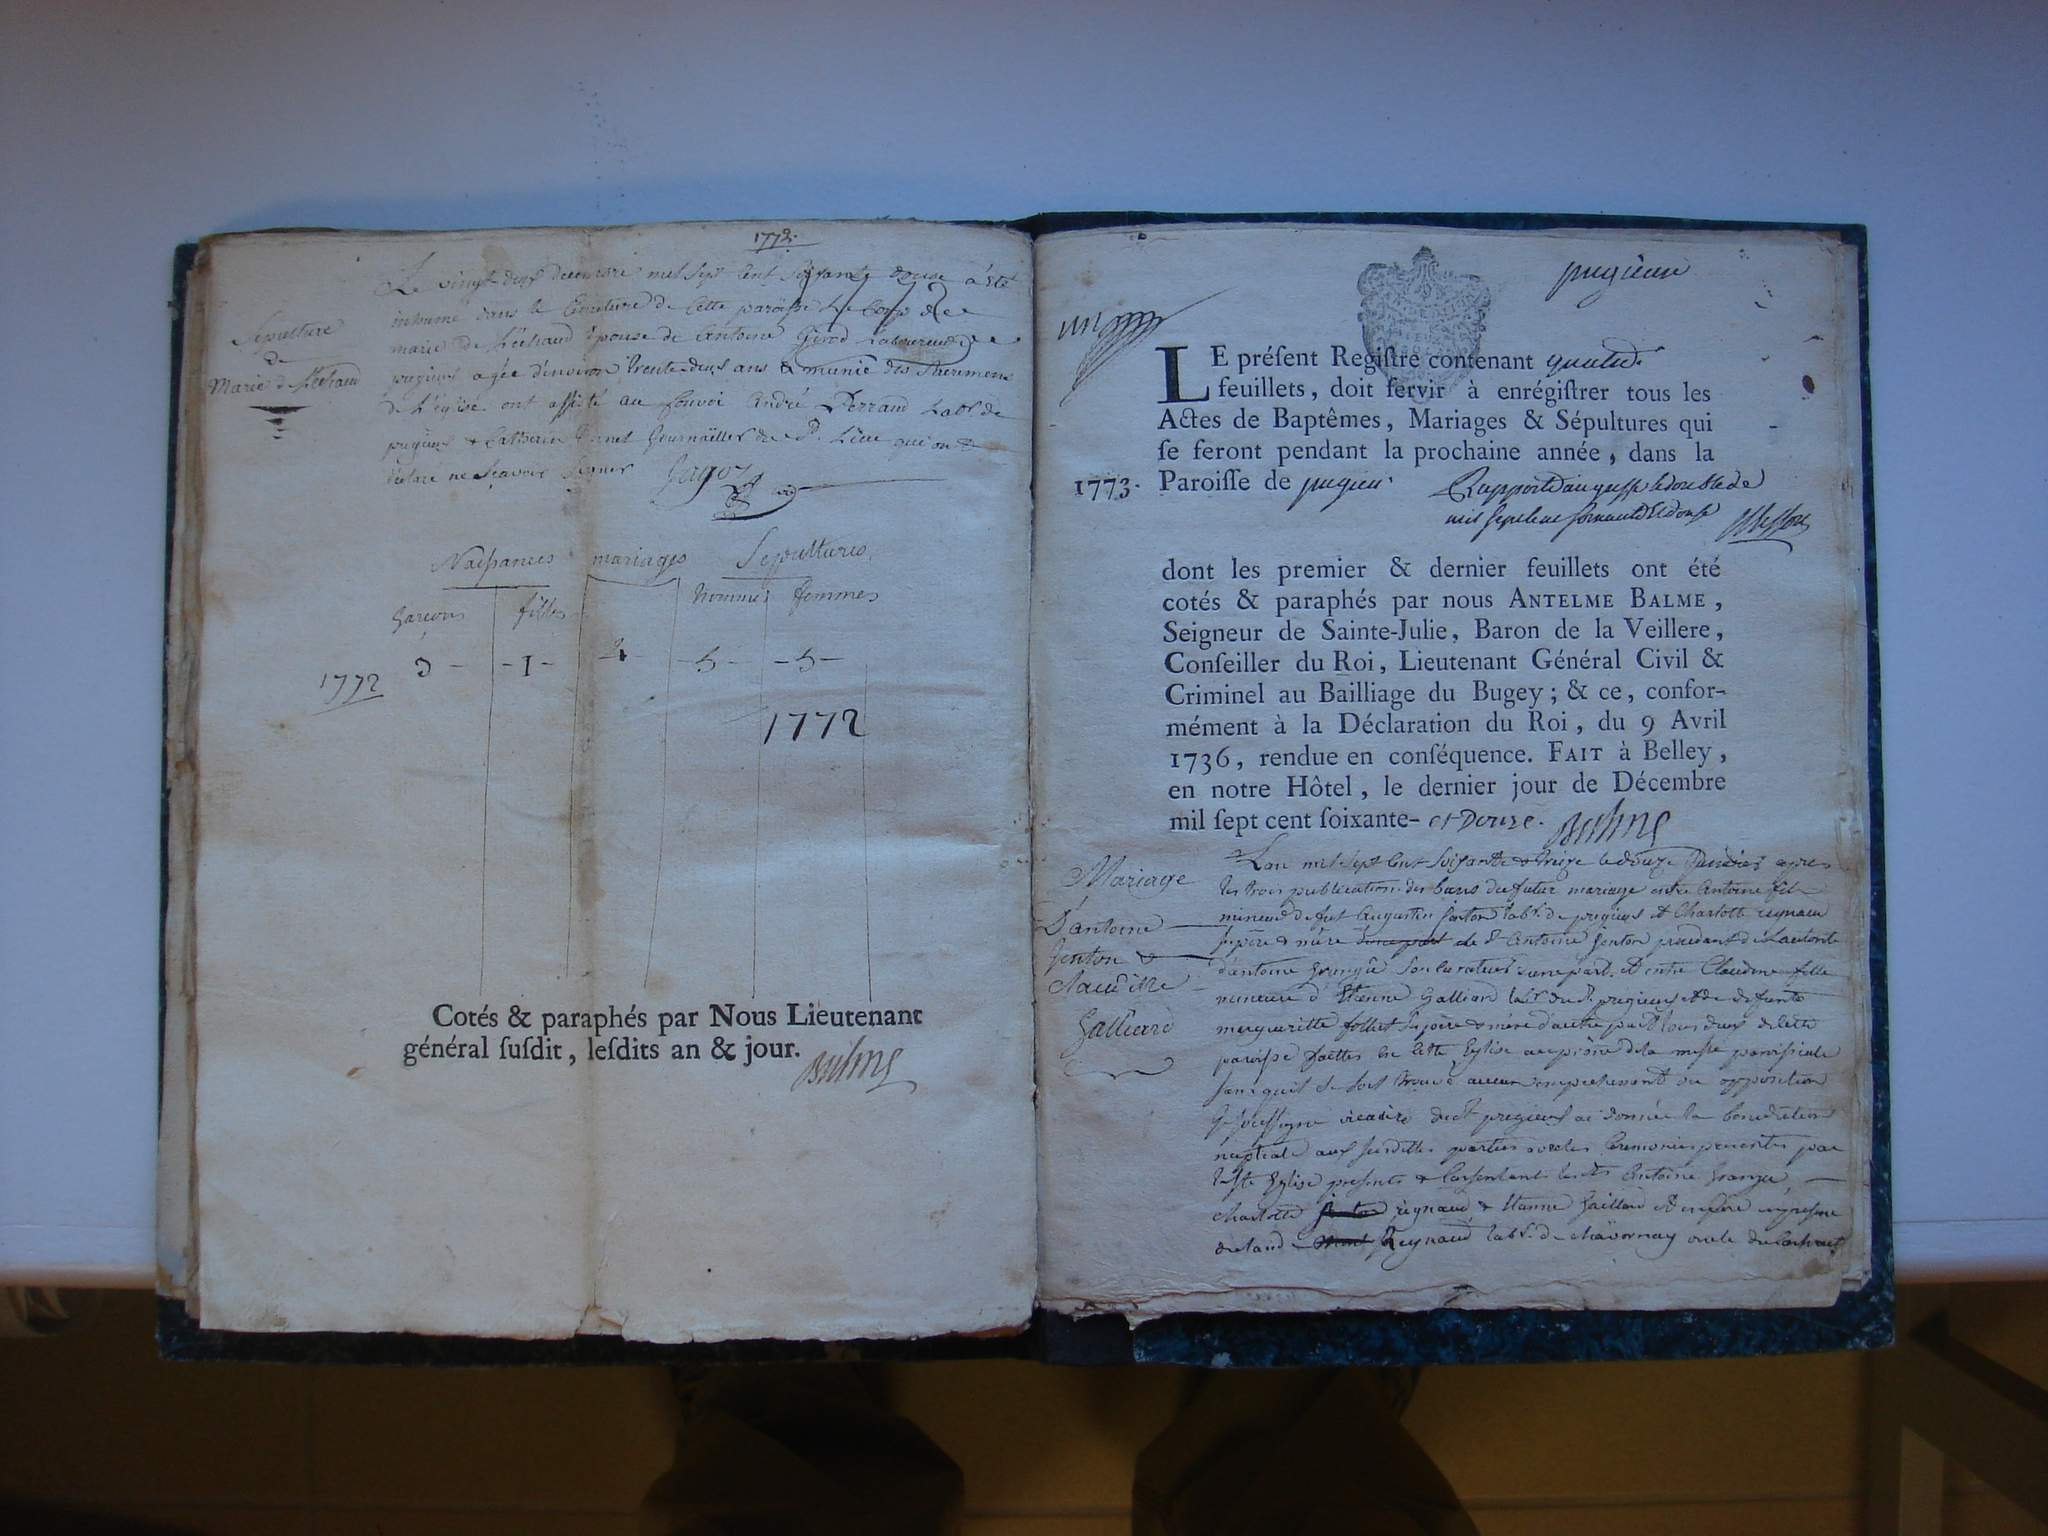 1772.
Le vingt deux decembre mil sept cent soixante douze a été
inhumé dans le cimetiere de cette paroisse le corp de
marie de épouse de antoine Girod laboureur de
pugieux agée d'environ trente deux ans & munie des
de L'eglise ont assisté au convoi andré Perraud labr de
pugieux & Catherine du d. Lieu qui on
déclaré ne sçavoir signer Jagot
Sepulture
de
Marie d
Naissances mariages Sepultures
Garçons filles hommes femmes
1772 3 - - 1 - - 5 - - 5 -
1772
Cotés & paraphés par Nous Lieutenant
général ſuſdit, leſdits an & jour.
Balme
pugieux
un
LE préſent Regiſtre contenant
feuillets, doit ſervir à enrégiſtrer tous les
Actes de Baptêmes, Mariages & Sépultures qui
ſe feront pendant la prochaine année, dans la
1773. Paroiſſe de pugieu.
Rapporté au greffe le double de
mil sept cent soixante et douze
dont les premier & dernier feuillets ont été
cotés & paraphés par nous ANTELME BALME,
Seigneur de Sainte-Julie, Baron de la Veillere,
Conſeiller du Roi, Lieutenant Général Civil &
Criminel au Bailliage du Bugey; & ce, confor-
mément à la Déclaration du Roi, du 9 Avril
1736, rendue en conſéquence. FAIT à Belley,
en notre Hôtel, le dernier jour de Décembre
mil ſept cent ſoixante- et Douze. Balme
Mariage
D'antoine
Jenton &
Claudine
Galliard
Lan mil sept cent soixante & treize le douze Janvier apres
les trois publications des bans du futur mariage entre Antoine fils
mineur de fut Augustin Jenton labr. de pugieux & Charlotte reynaud
ses pere & mere le dt Antoine Jenton procedant de l'autorité
d'antoine Grangé son curateur d'une part. Et entre Claudine fille
mineure d'Etienne Galliard labr du dt pugieux & de defunte
margueritte follies ses pere & mere d'autre part tous deux de cette
paroisse faittes en cette Eglise au prône de la messe paroissiale
sans quil se soit trouvé aucun empechement ou opposition
Je soussigné vicaire dudt pugieux ai donnée la benediction
nuptiale aux susdittes parties avec les ceremonies prescrites par
la Ste Eglise presents & consentant les dts Antoine Grangé
charlotte reynaud & Etienne Gaillard
Reynaud labr. de chavornay oncle du